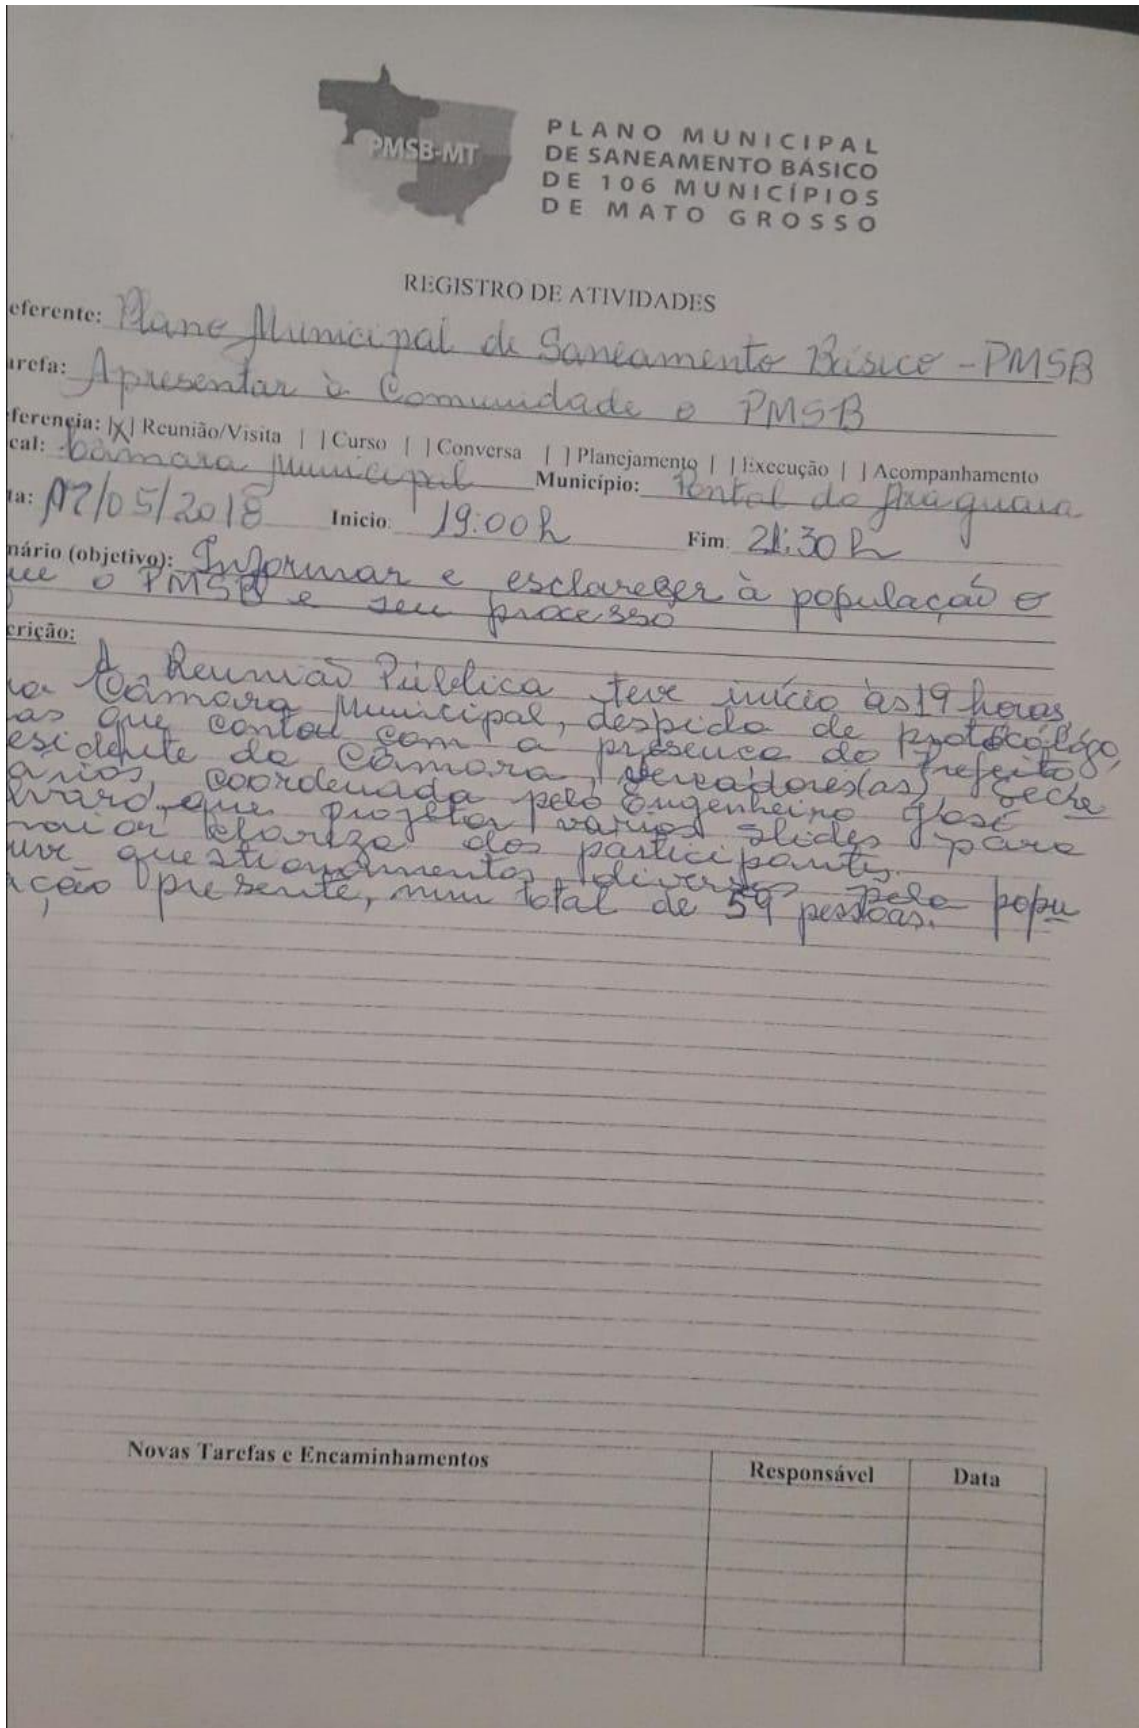 PMSB-MT
PLANO MUNICIPAL
DE SANEAMENTO BÁSICO
DE 106 MUNICÍPIOS
DE MATO GROSSO
REGISTRO DE ATIVIDADES
eferente: Plano Municipal de Saneamento Básico - PMSB
arefa: Apresentar à Comunidade o PMSB
ferencia: |X| Reunião/Visita | | Curso | | Conversa | | Planejamento | | Execução | | Acompanhamento
cal: Câmara Municipal Município: Pontal do Araguaia
ta: 17/05/2018 Inicio: 19:00 h Fim: 21:30 h
nário (objetivo): Informar e esclarecer à população o
ue o PMSB e seu processo
crição:
A Reunião Pública teve início às 19 horas,
na Câmara Municipal, despida de
as que contou com a presença do Prefeito,
esidente da Câmara, vereadores(as), Secre
arios, coordenada pelo Engenheiro José
lvaro, que projetou vários slides para
maior clareza dos participantes.
uve questionamentos diversos pela popu
ação presente, num total de 59 pessoas.
Novas Tarefas e Encaminhamentos Responsável Data